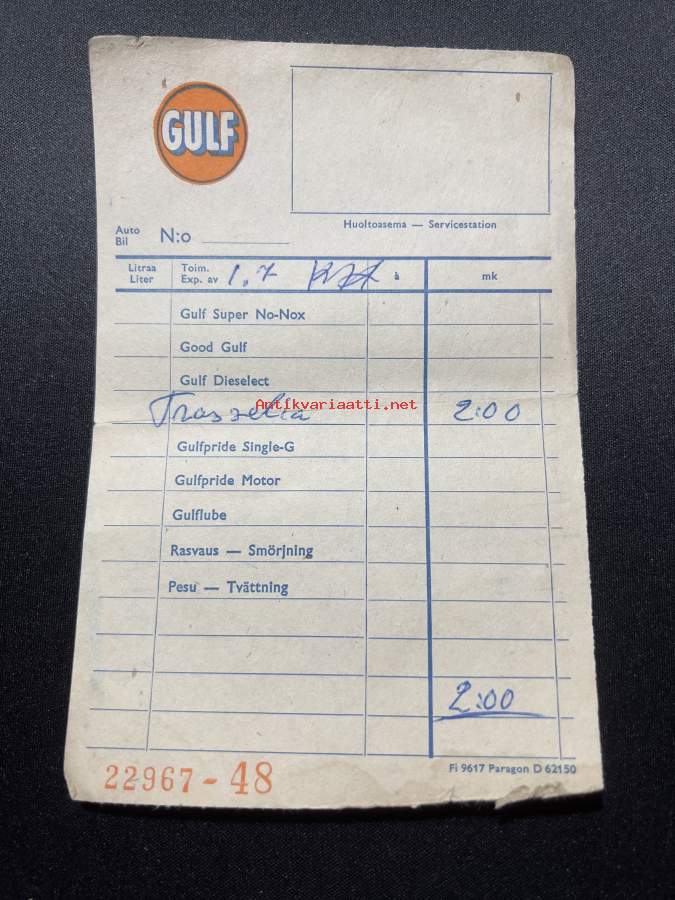 GULF
Huoltoasema — Servicestation
Auto
Bil
N:o
Litraa
Liter
Toim.
Exp. av
1.7
à
mk
Gulf Super No-Nox
Good Gulf
Gulf Dieselect
Trasselia 2:00
Antikvariaatti.net
Gulfpride Single-G
Gulfpride Motor
Gulflube
Rasvaus — Smörjning
Pesu — Tvättning
2:00
22967-48
Fi 9617 Paragon D 62150